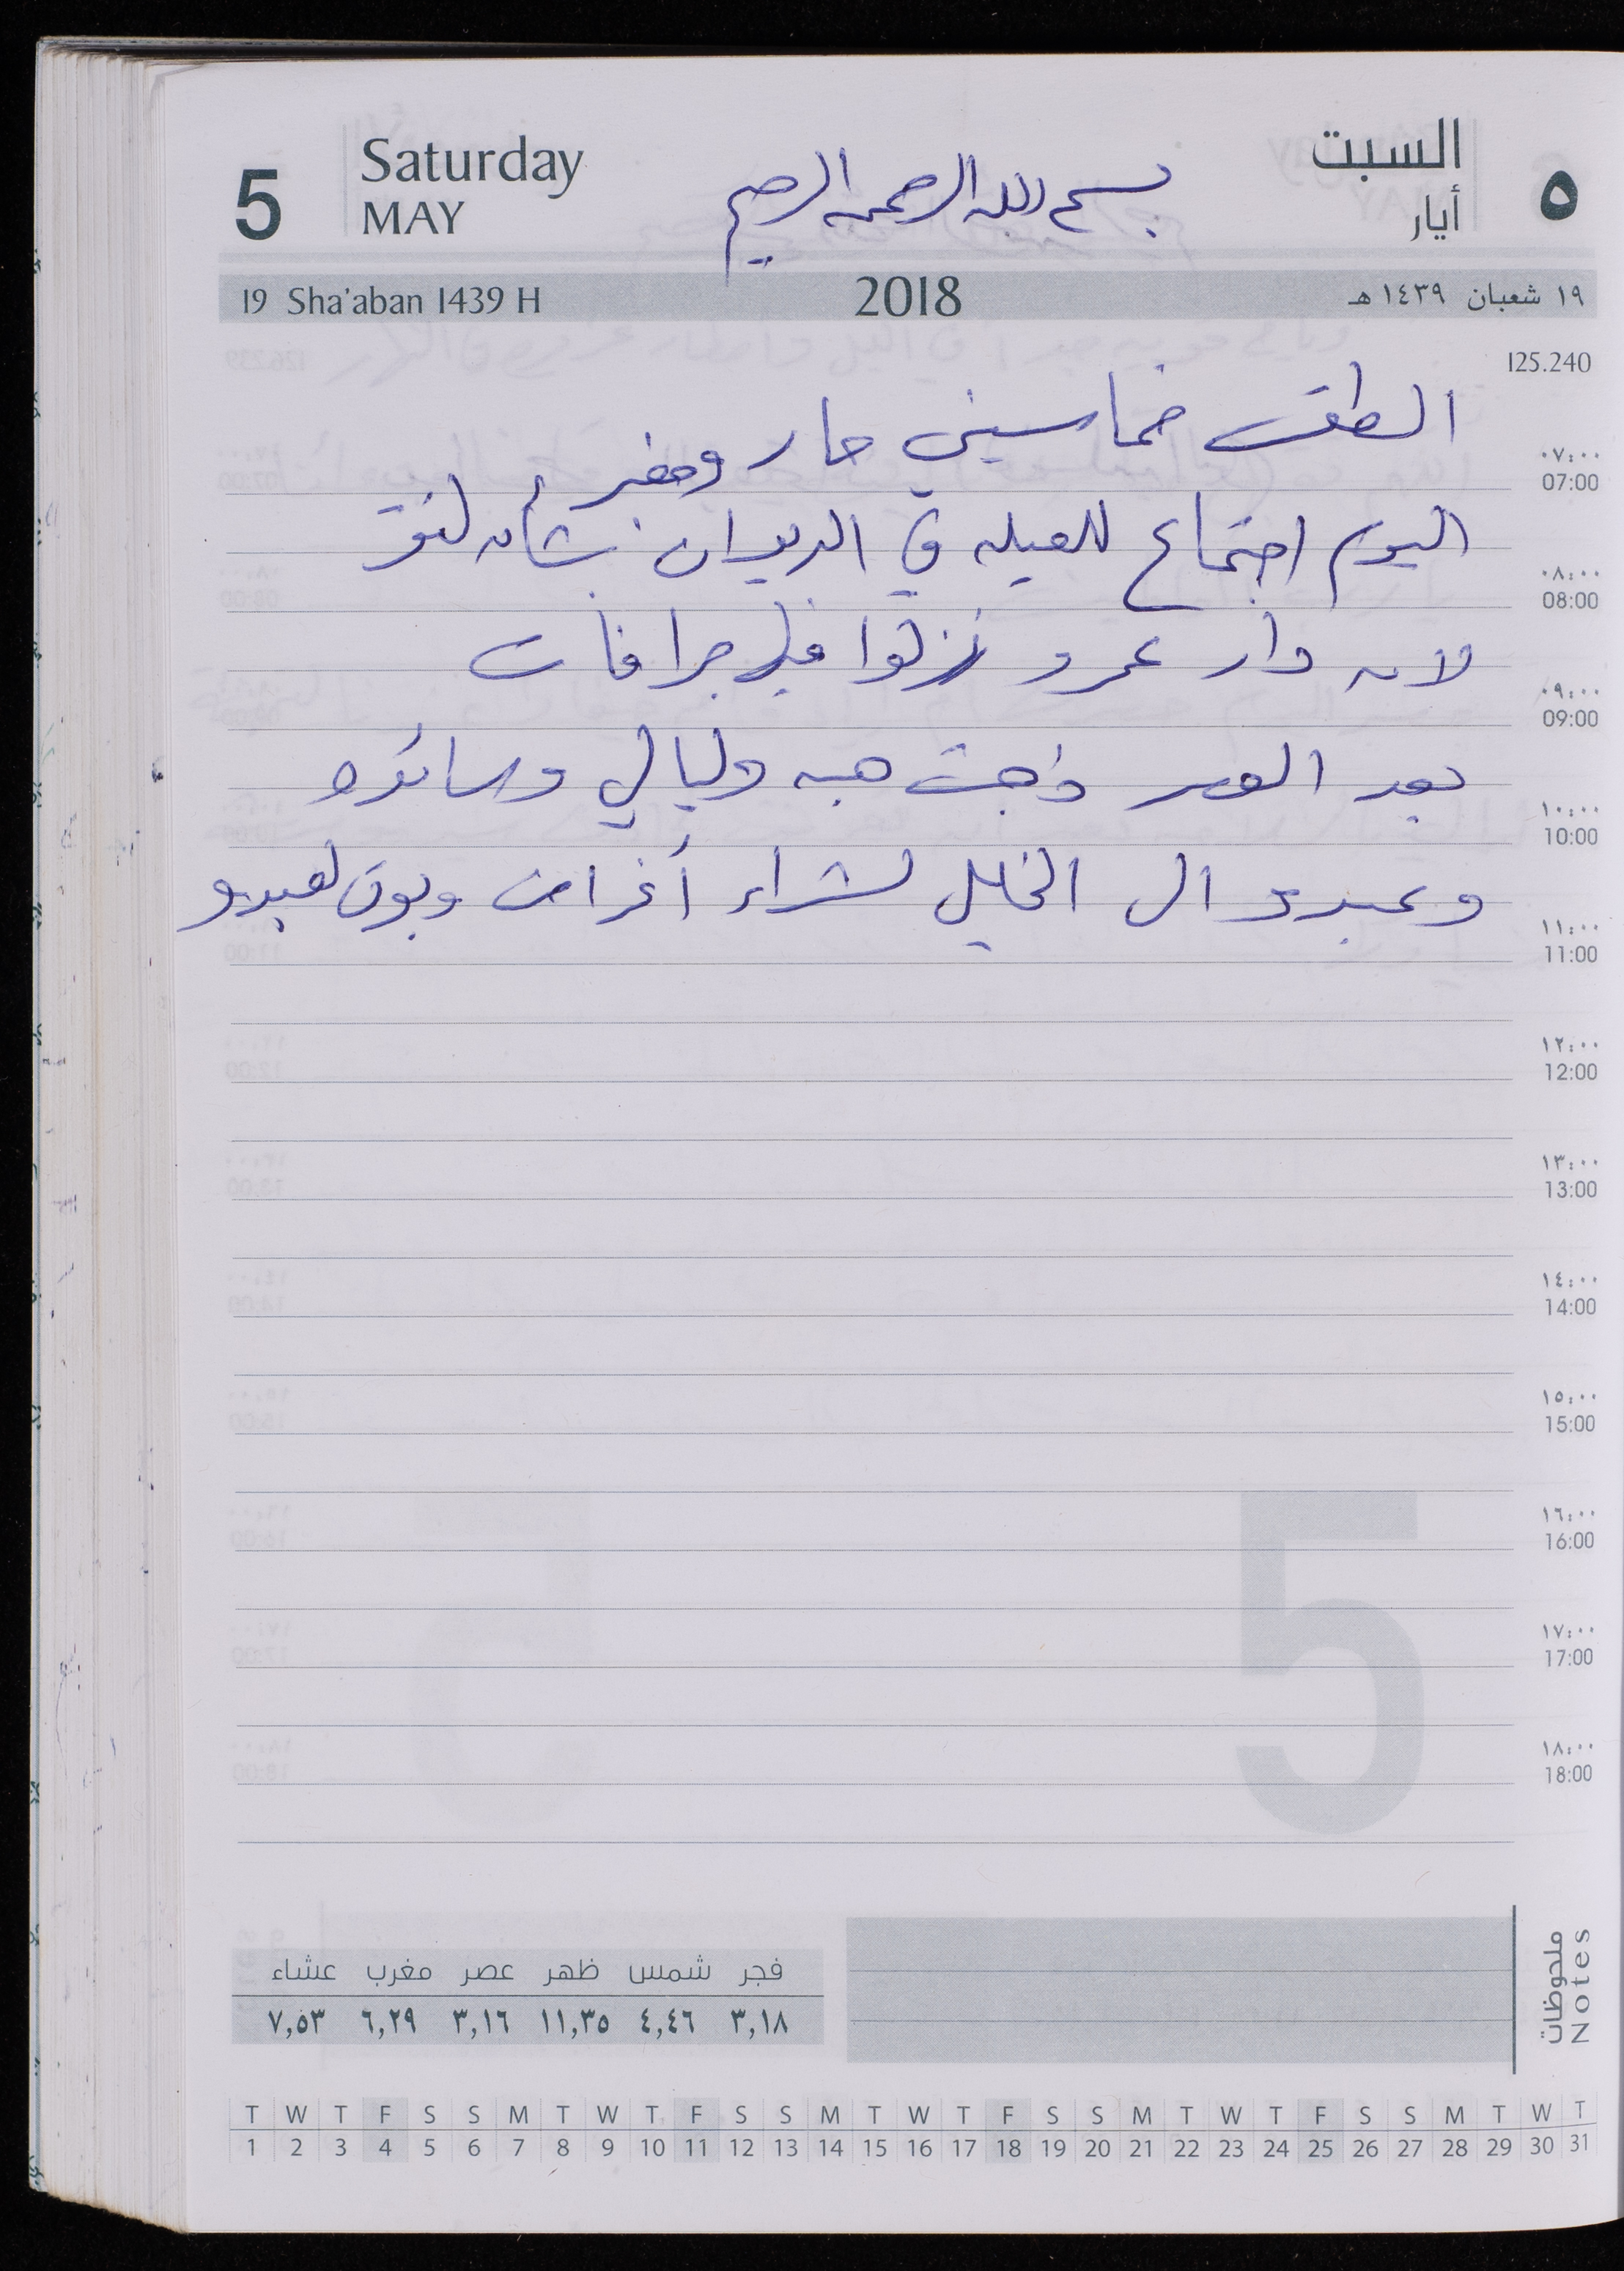 5 Saturday MAY
بسم الله الرحمن الرحيم
السبت أيار ٥
19 Sha'aban 1439 H 2018 ١٩ شعبان ١٤٣٩ هـ
125.240
الطقس خماسيني حار ومغبر
اليوم اجتماع للعيله في الديوان بشأن
لان دار عمرو نزلوا جرافات
بعد العصر ذهبت هبه وليالي وسائده
وعبدو الى الخليل لشراء أغراض وبوت لعبدو
٠٧:٠٠
07:00
٠٨:٠٠
08:00
٠٩:٠٠
09:00
١٠:٠٠
10:00
١١:٠٠
11:00
١٢:٠٠
12:00
١٣:٠٠
13:00
١٤:٠٠
14:00
١٥:٠٠
15:00
١٦:٠٠
16:00
١٧:٠٠
17:00
١٨:٠٠
18:00
5
ملحوظات
Notes
فجر شمس ظهر عصر مغرب عشاء
٣,١٨ ٤,٤٦ ١١,٣٥ ٣,١٦ ٦,٢٩ ٧,٥٣
T W T F S S M T W T F S S M T W T F S S M T W T F S S M T W T
1 2 3 4 5 6 7 8 9 10 11 12 13 14 15 16 17 18 19 20 21 22 23 24 25 26 27 28 29 30 31